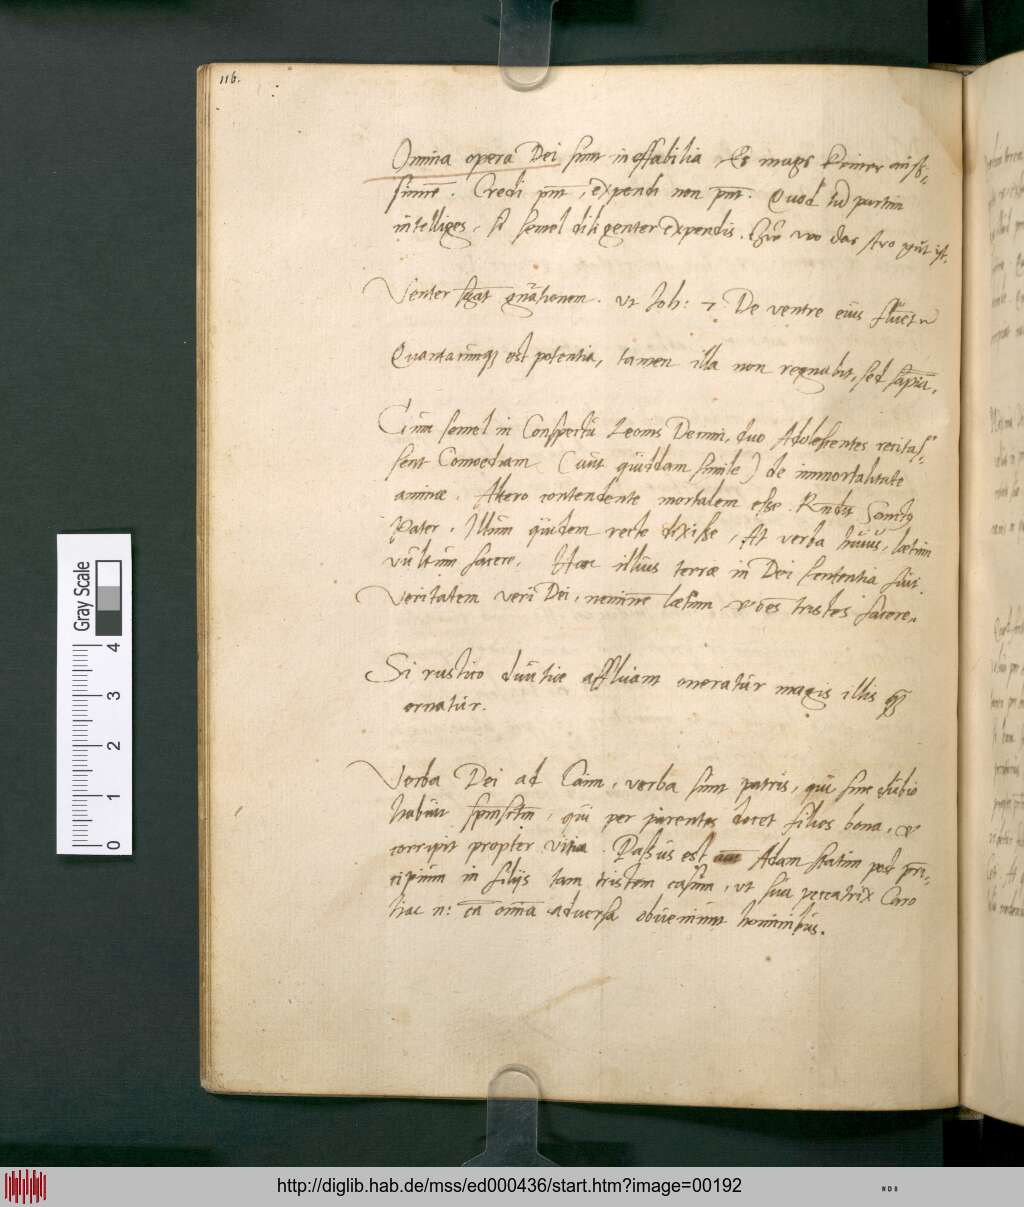 116.
Omnia opera Dei sunt ineffabilia, Es mags keiner auß-
sinnē. Credi pn̄t, expendi non pn̄t. Quod tū partim
intelliges, si semel diligenter expendis. wo das
Venter sigāt gn̄ationem. ut Joh: 7. De ventre eius fluēt
Quantacunq; est potentia, tamen illa non regnabit, sed sapīa.
Cum semel in Conspectu Leonis Decimi, duo Adolescentes recitas-
sent Comoediam (aut quiddam simile) de immortalitate
animæ. Altero contendente mortalem esse. Rn̄dit Sanctꝰ
Pater. Illum quidem recte dixisse, At verba huius, lætum
vultum facere. Hæc illius terræ in Dei sententia fuit.
Veritatem veri Dei, neminē lætum, & oēs tristes facere.
Si rustico divitiæ affluant oneratur magis illis qͣ
ornatur.
Verba Dei ad Cain, verba sunt patris, qui sine dubio
habuit spm̄sctm̄, qui per parentes docet filios bona, &
corripit propter vitia. Passus est Adam statim post prīn-
cipium in filijs tam tristem casum, ut sua peccatrix Caro
hac n: cā om̄ia adversa obueniunt hominibus.
Gray Scale
0 1 2 3 4
http://diglib.hab.de/mss/ed000436/start.htm?image=00192